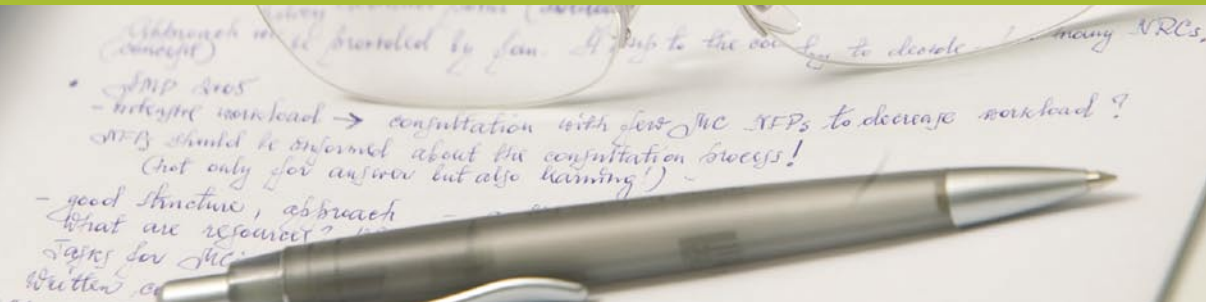 be provided by Jan. It up to the to decide many NRCs,
(concept)
• 2005
- intensive workload → consultation with few MC NFPs to decrease workload?
NFPs should be informed about the consultation process!
(not only for answer but also learning!) -
- good structure, approach
What are resources?
Tasks for MC:
Written